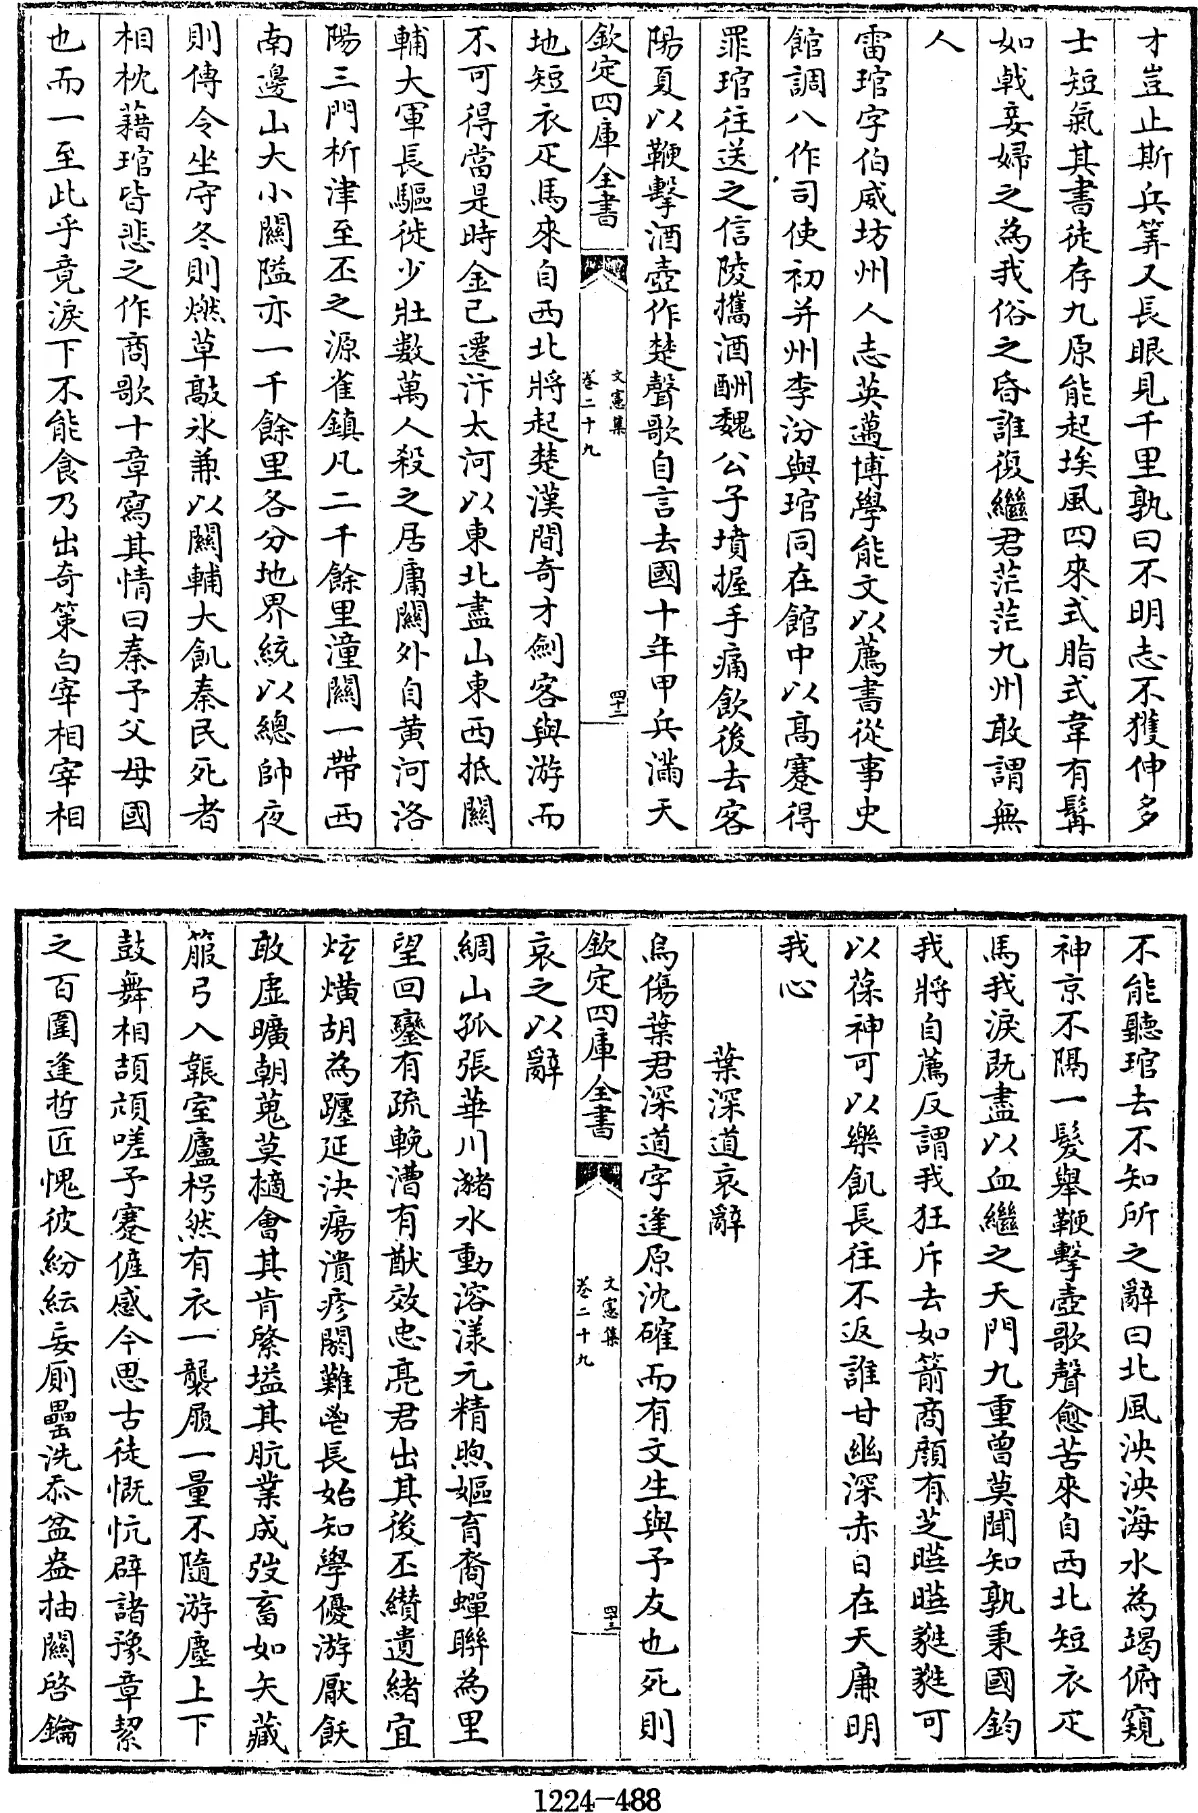 才豈止斯兵筭又長眼見千里孰曰不明志不獲伸多
士短氣其書徒存九原能起埃風四來式脂式韋有髯
如㦸妾婦之為我俗之昏誰復繼君茫茫九州敢謂無
人
雷琯字伯威坊州人志英邁博學能文以薦書從事史
館調八作司使初并州李汾與琯同在館中以髙蹇得
罪琯往送之信陵攜酒酬魏公子墳握手痛飲後去客
陽夏以鞭擊酒壺作楚聲歌自言去國十年甲兵滿天
欽定四庫全書
文憲集
卷二十九
四十二
地短衣疋馬來自西北將起楚漢間奇才劍客與游而
不可得當是時金已遷汴太河以東北盡山東西抵關
輔大軍長驅徙少壯數萬人殺之居庸關外自黄河洛
陽三門析津至丕之源雀鎮凡二千餘里潼關一帶西
南邊山大小關隘亦一千餘里各分地界統以總帥夜
則傳令坐守冬則燃草敲氷兼以關輔大飢秦民死者
相枕藉琯皆悲之作商歌十章寫其情曰秦予父母國
也而一至此乎竟淚下不能食乃出奇策白宰相宰相
不能聽琯去不知所之辭曰北風泱泱海水為竭俯窺
神京不隔一髮舉鞭擊壺歌聲愈苦來自西北短衣疋
馬我淚既盡以血繼之天門九重曾莫聞知孰秉國鈞
我將自薦反謂我狂斥去如箭商顔有芝曄曄蕤蕤可
以葆神可以樂飢長往不返誰甘幽深赤日在天廉明
我心
葉深道哀辭
烏傷葉君深道字逢原沈確而有文生與予友也死則
欽定四庫全書
文憲集
卷二十九
四十三
哀之以辭
綢山孤張華川瀦水動溶漾元精煦嫗育裔蟬聯為里
望回鑾有疏輓漕有猷效忠亮君出其後丕纘遺緒宜
炫熿胡為躔延決瘍潰疹閼難鬯長始知學優游厭飫
敢虛曠朝蒐莫擿會其肯綮搤其肮業成弢畜如矢藏
箙弓入韔室廬枵然有衣一襲履一量不隨游塵上下
鼓舞相頡頏嗟予蹇傕感今思古徒慨忼辟諸豫章絜
之百圍逢哲匠愧彼紛紜妄厠罍洗忝盆盎抽關啓鑰
1224-488